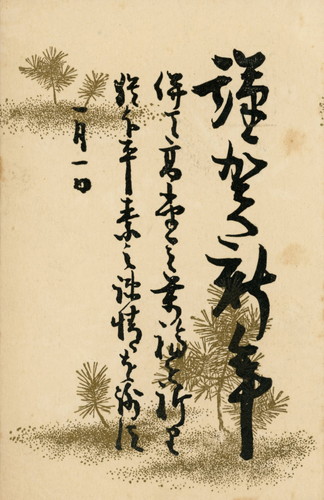 謹賀新年
併て高堂之萬福を祈り
猶ほ平素之疎情を謝す
一月一日